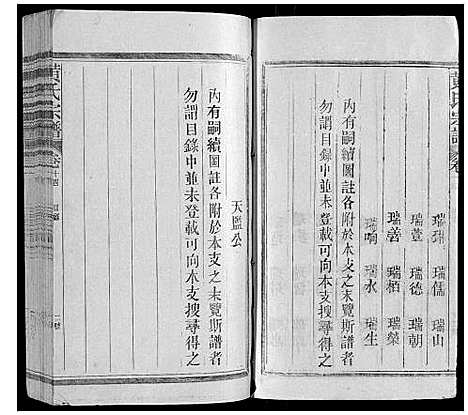 黃氏宗譜 卷
瑞 瑞儒 瑞山
瑞萱 瑞德 瑞朝
瑞善 瑞栢 瑞榮
瑞响 瑞水 瑞生
內有嗣續圖註各附於本支之末覽斯譜者
勿謂目錄中並未登載可向本支搜尋得之
天監公
內有嗣續圖註各附於本支之末覽斯譜者
勿謂目錄中並未登載可向本支搜尋得之
黃氏宗譜 卷